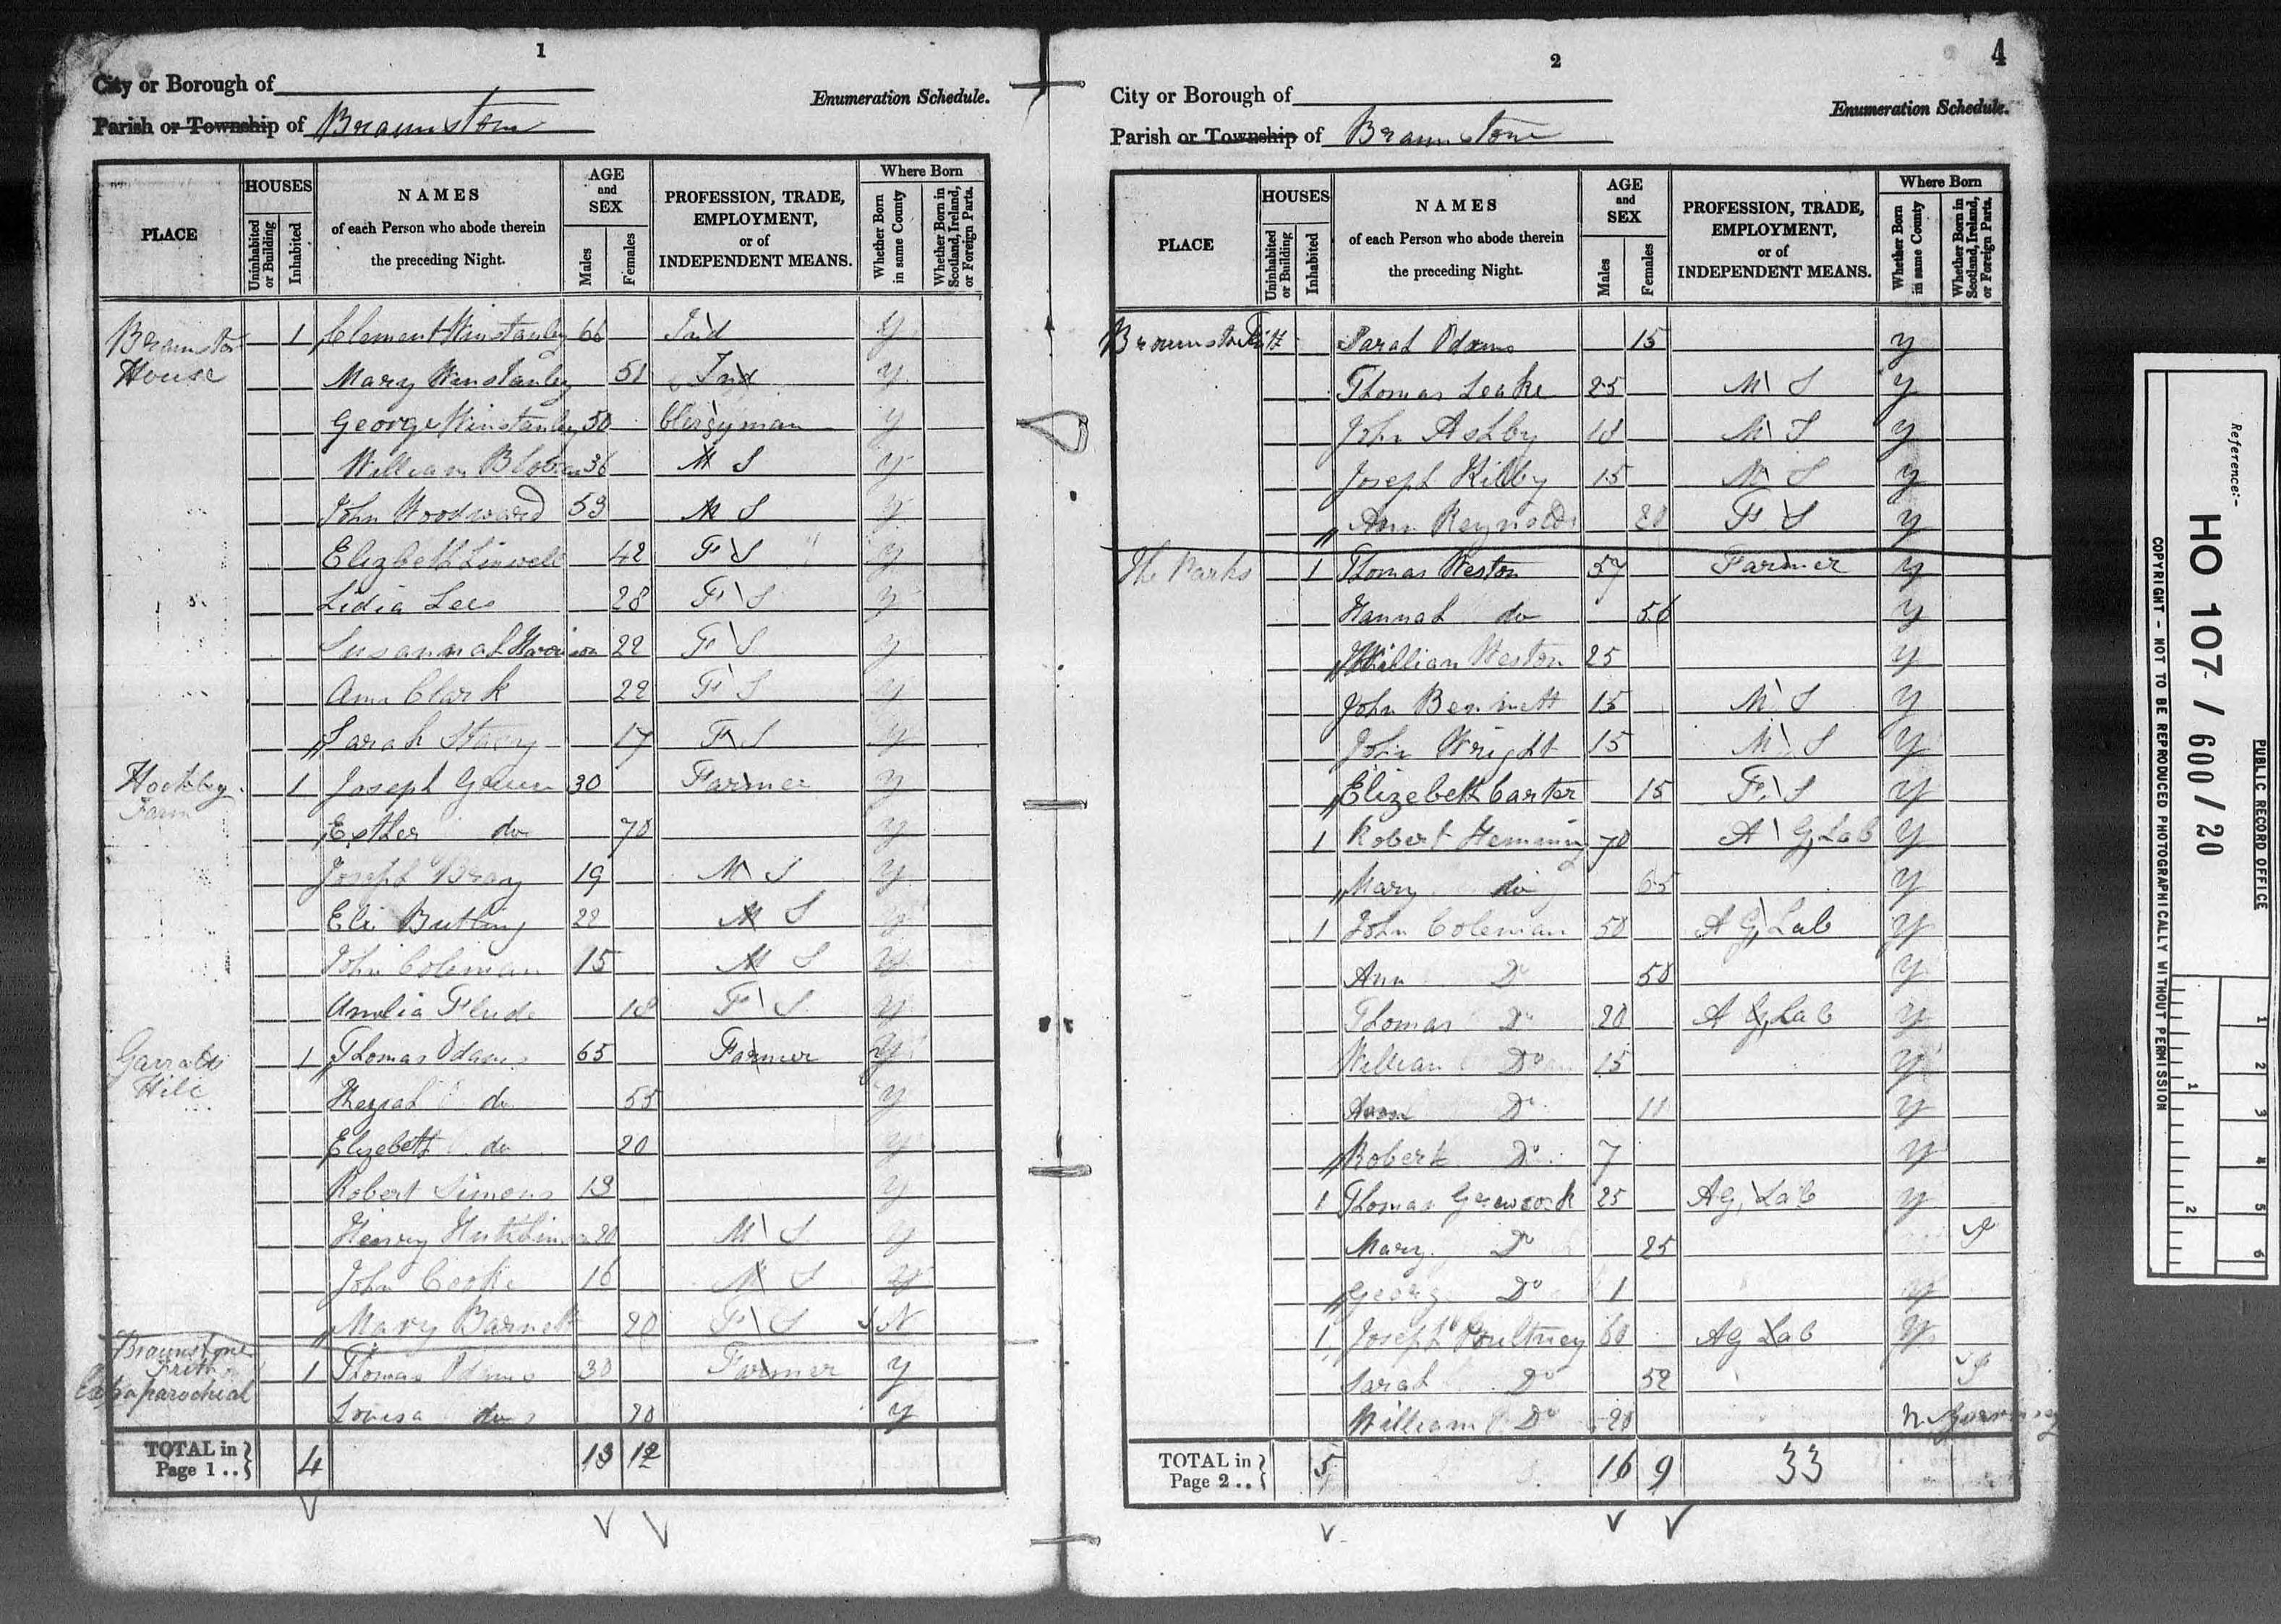 1
City or Borough of
Enumeration Schedule.
Parish or Township of Braunstone
PLACE
HOUSES
Uninhabited or Building
Inhabited
NAMES
of each Person who abode therein
the preceding Night.
AGE
and
SEX
Males
Females
PROFESSION, TRADE,
EMPLOYMENT,
or of
INDEPENDENT MEANS.
Where Born
Whether Born in same County
Whether Born in Scotland, Ireland, or Foreign Parts.
House 1 Clement Winstanley 66 Ind y
Mary Winstanley 51 Ind y
George Winstanley 50 Clergyman y
William 36 M S y
John Woodward 53 M S y
Elizbeth Linwell 42 F S y
Lidia Lees 28 F S y
Susannah 22 F S y
Ann Clark 22 F S y
Sarah 17 F S y
Hockley Farm 1 Joseph Green 30 Farmer y
Esther do 70 y
Joseph Bray 19 M S y
Eli 22 M S y
John Coleman 15 M S y
Amelia Flude 18 F S y
Hill 1 Thomas Odams 65 Farmer y
do 55 y
Elyzebeth do 20 y
Robert Simons 13 y
Henry 20 M S y
John Cooke 16 M S y
Mary Barnett 20 F S N
Braunstone
Frith
Extraparochial
1 Thomas Odams 30 Farmer y
Louisa do 20 y
TOTAL in Page 1 .. 4 13 12
2
4
City or Borough of
Enumeration Schedule.
Parish or Township of Braunstone
PLACE
HOUSES
Uninhabited or Building
Inhabited
NAMES
of each Person who abode therein
the preceding Night.
AGE
and
SEX
Males
Females
PROFESSION, TRADE,
EMPLOYMENT,
or of
INDEPENDENT MEANS.
Where Born
Whether Born in same County
Whether Born in Scotland, Ireland, or Foreign Parts.
Sarah Odams 15 y
Thomas Leake 25 M S y
John Ashby 18 M S y
Joseph Kilby 15 M S y
Ann Reynolds 20 F S y
The Parks 1 Thomas Weston 57 Farmer y
Hannah do 56 y
William Weston 25 y
John Bennett 15 M S y
John Wright 15 M S y
Elizebeth Carter 15 F S y
1 Robert Hemming 70 A G Lab y
Mary do 65 y
1 John Coleman 50 A G Lab y
Ann Do 50 y
Thomas Do 20 A G Lab y
William Do 15 y
Do 11 y
Robert Do 7 y
1 Thomas 25 AG Lab y
Mary Do 25
George Do 1 y
1 Joseph Poultney 60 AG Lab y
Sarah Do 52
William Do 20 N Guernsey
TOTAL in Page 2 .. 5 16 9 33
Reference:-
HO 107 / 600 / 20
PUBLIC RECORD OFFICE
COPYRIGHT - NOT TO BE REPRODUCED PHOTOGRAPHICALLY WITHOUT PERMISSION
1 2 3 4 5 6
1 2